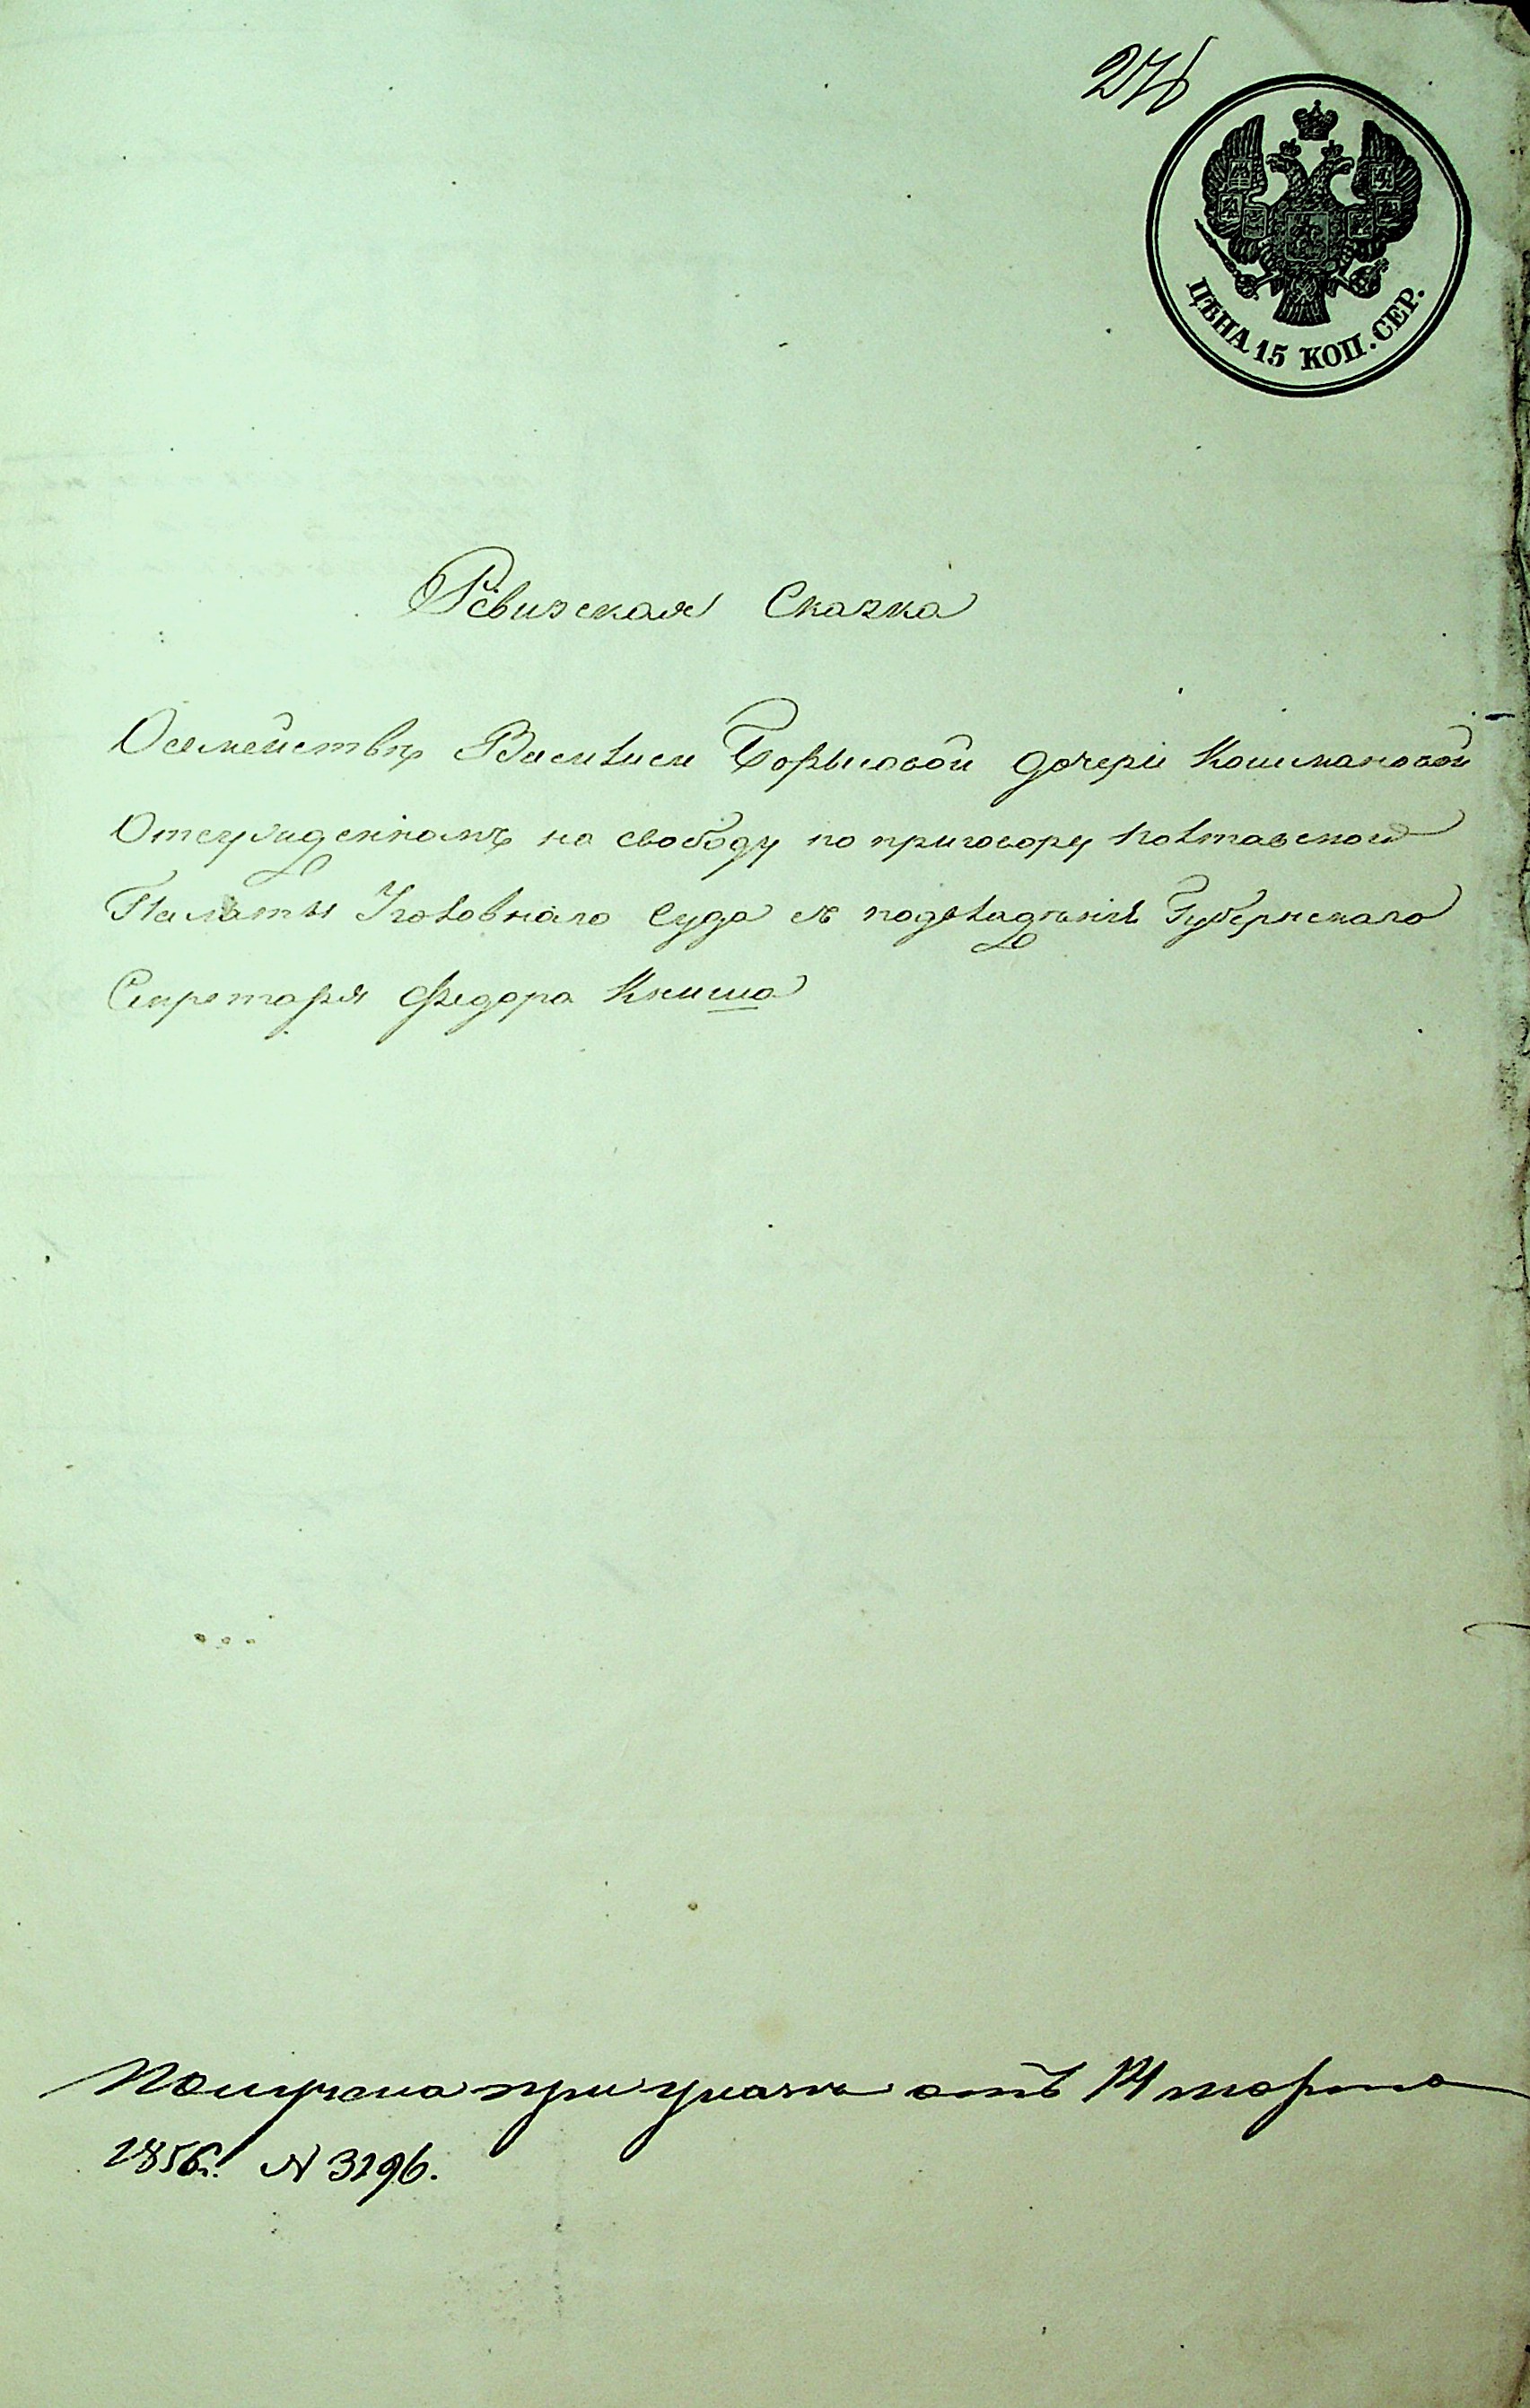 276
ЦѢНА 15 КОП. СЕР.
Ревизская Сказка
О семействѣ Василисы Борысовой дочери Кошмановой
Отсужденномъ на свободу по приговору Полтавской
Палаты Уголовнаго Суда съ подвладѣнія Губернскаго
Секретаря Федора Книша
Получена при указѣ отъ 14 марта
1856 г. N 3296.